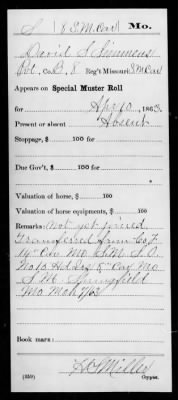 S | 8 S.M. Cav | Mo.
David S Simmons
Pvt., Co. B, 8 Reg't Missouri S M Cav
Appears on Special Muster Roll
for Apr 10, 1863.
Present or absent Absent
Stoppage, $ 100 for
Due Gov't, $ 100 for
Valuation of horse, $ 100
Valuation of horse equipments, $ 100
Remarks: Not yet joined
Transferred from Co F
14" Cav Mo S.M. S.O.
No 13 Hd Qrs 5" Cav Mo
S M Springfield
Mo Mch 4/63
Book mark:
(359)
Miller
Copyist.